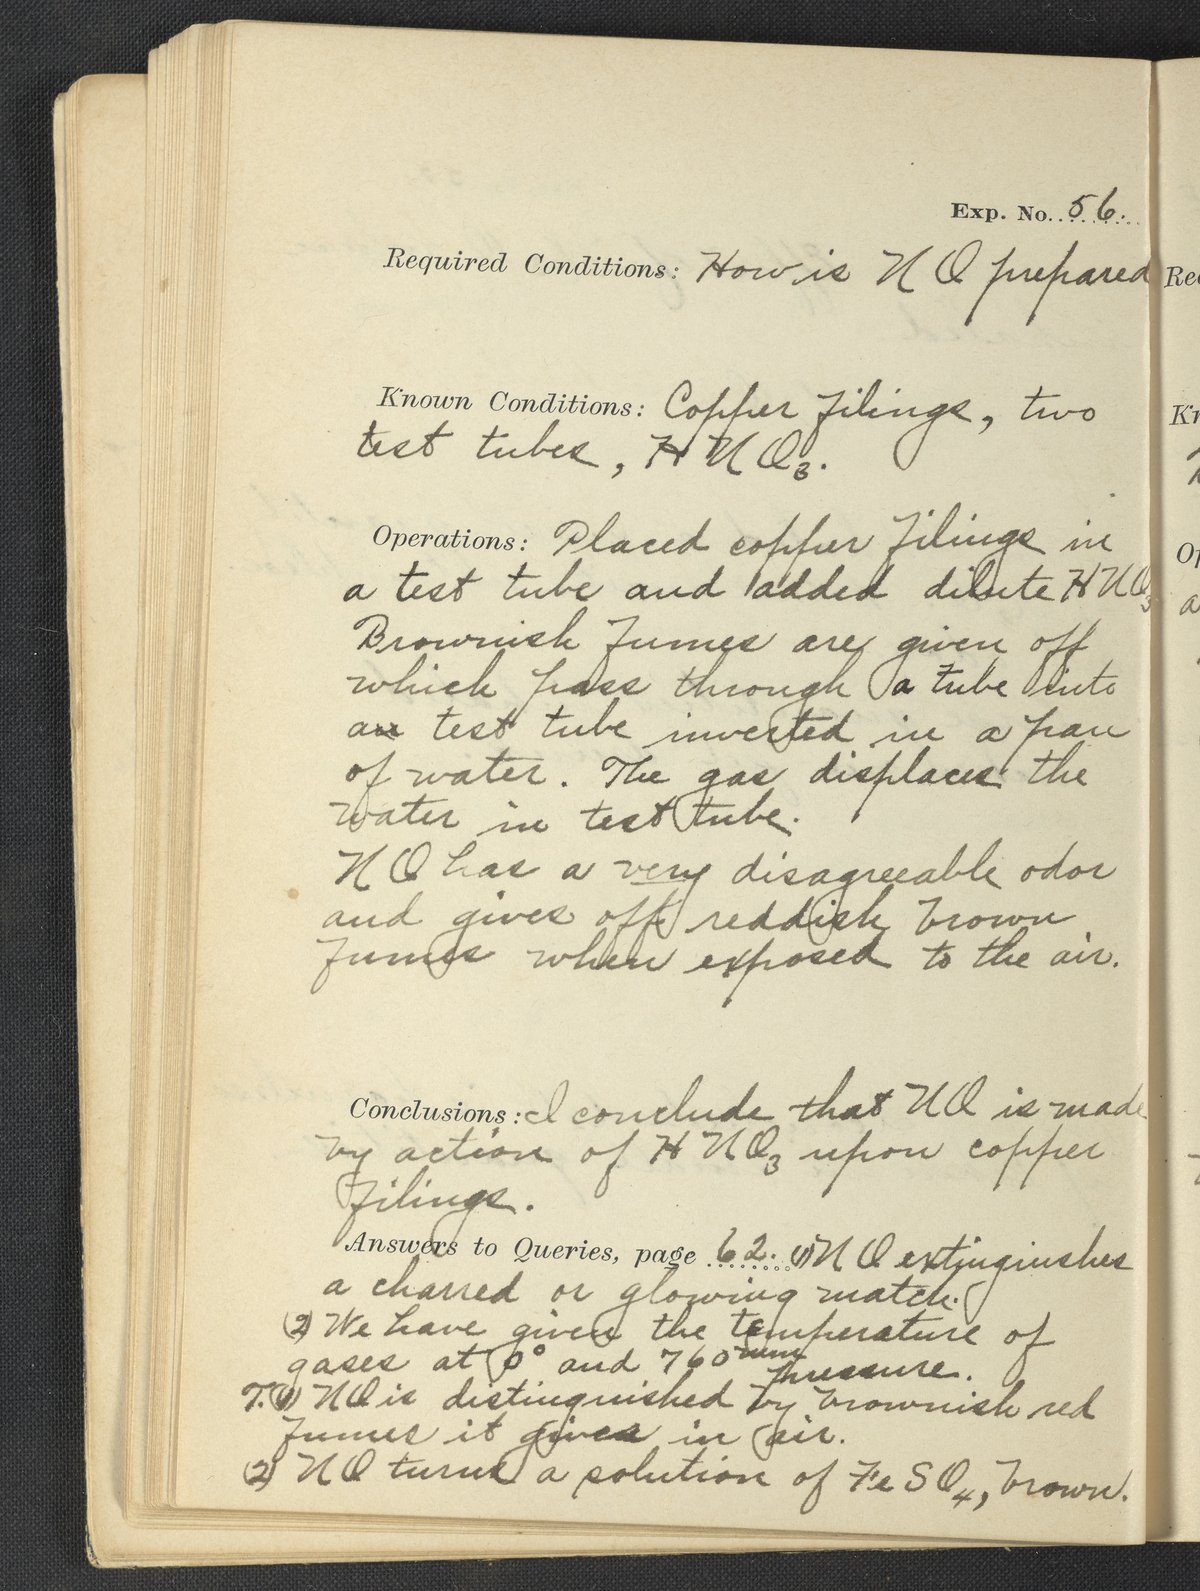 Exp. No. 56.
Required Conditions: How is NO prepared
Known Conditions: Copper filings, two
test tubes, HNO3.
Operations: Placed copper filings in
a test tube and added dilute HNO3
Brownish fumes are given off
which pass through a tube into
a test tube inverted in a pan
of water. The gas displaces the
water in test tube.
NO has a very disagreeable odor
and gives off reddish brown
fumes when exposed to the air.
Conclusions: I conclude that NO is made
by action of HNO3 upon copper
filings.
Answers to Queries, page 62. (1) NO extinguishes
a charred or glowing match.
(2) We have given the temperature of
gases at 0° and 760 mm pressure.
T.(1) NO is distinguished by brownish red
fumes it gives in air.
(2) NO turns a solution of FeSO4, brown.